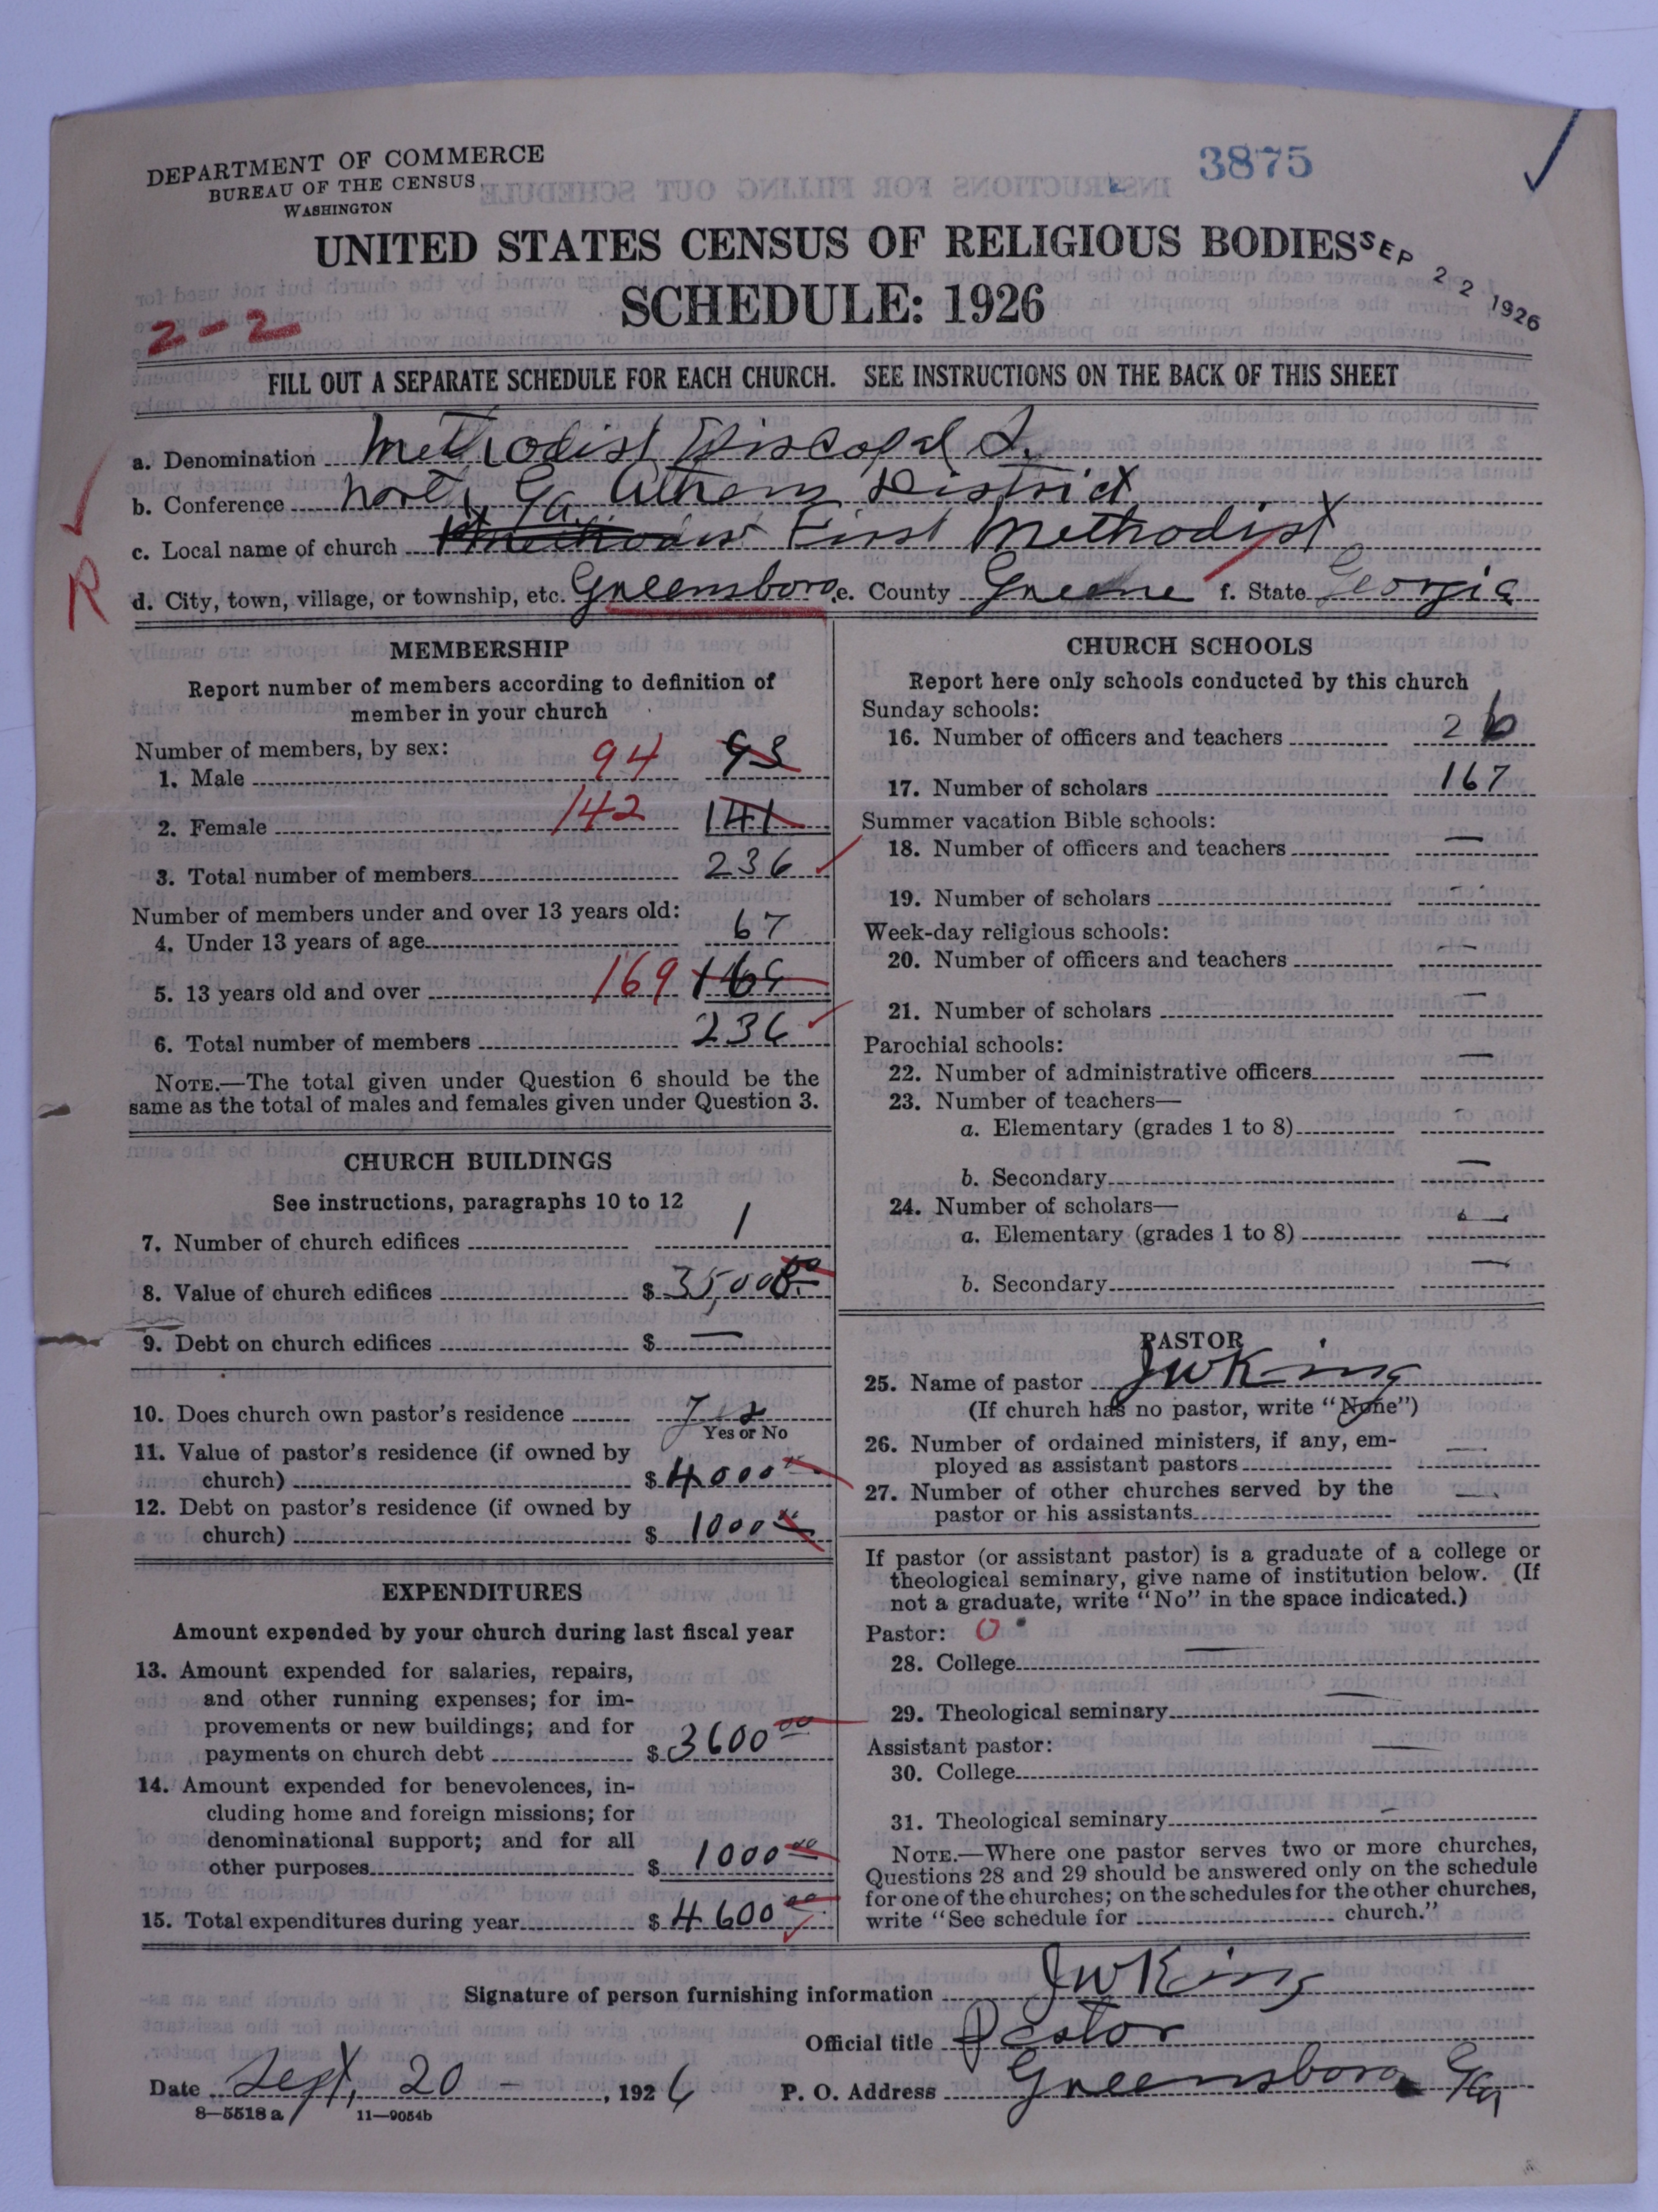 DEPARTMENT OF COMMERCE
BUREAU OF THE CENSUS
WASHINGTON
3875
UNITED STATES CENSUS OF RELIGIOUS BODIES
SEP 22 1926
SCHEDULE: 1926
2-2
FILL OUT A SEPARATE SCHEDULE FOR EACH CHURCH. SEE INSTRUCTIONS ON THE BACK OF THIS SHEET
a. Denomination Methodist Episcopal S.
b. Conference North Ga. Athens District
c. Local name of church First Methodist
R
d. City, town, village, or township, etc. Greensboro e. County Greene f. State Georgia
MEMBERSHIP
Report number of members according to definition of
member in your church
Number of members, by sex:
1. Male 94 93
2. Female 142 141
3. Total number of members 236
Number of members under and over 13 years old:
4. Under 13 years of age 67
5. 13 years old and over 169 169
6. Total number of members 236
NOTE.—The total given under Question 6 should be the
same as the total of males and females given under Question 3.
CHURCH BUILDINGS
See instructions, paragraphs 10 to 12
7. Number of church edifices 1
8. Value of church edifices $ 35,000.00
9. Debt on church edifices $ —
10. Does church own pastor's residence Yes
Yes or No
11. Value of pastor's residence (if owned by
church) $ 4000 00
12. Debt on pastor's residence (if owned by
church) $ 1000 00
EXPENDITURES
Amount expended by your church during last fiscal year
13. Amount expended for salaries, repairs,
and other running expenses; for im-
provements or new buildings; and for
payments on church debt $ 3600 00
14. Amount expended for benevolences, in-
cluding home and foreign missions; for
denominational support; and for all
other purposes $ 1000 00
15. Total expenditures during year $ 4600 00
CHURCH SCHOOLS
Report here only schools conducted by this church
Sunday schools:
16. Number of officers and teachers 26
17. Number of scholars 167
Summer vacation Bible schools:
18. Number of officers and teachers —
19. Number of scholars —
Week-day religious schools:
20. Number of officers and teachers —
21. Number of scholars —
Parochial schools:
22. Number of administrative officers —
23. Number of teachers—
a. Elementary (grades 1 to 8) -
b. Secondary —
24. Number of scholars—
a. Elementary (grades 1 to 8) —
b. Secondary —
PASTOR
25. Name of pastor J W King
(If church has no pastor, write "None")
26. Number of ordained ministers, if any, em-
ployed as assistant pastors —
27. Number of other churches served by the
pastor or his assistants —
If pastor (or assistant pastor) is a graduate of a college or
theological seminary, give name of institution below. (If
not a graduate, write "No" in the space indicated.)
Pastor: 0
28. College —
29. Theological seminary —
Assistant pastor:
30. College —
31. Theological seminary —
NOTE.—Where one pastor serves two or more churches,
Questions 28 and 29 should be answered only on the schedule
for one of the churches; on the schedules for the other churches,
write "See schedule for church."
Signature of person furnishing information J W King
Official title Pastor
Date Sept. 20 - , 1926 P. O. Address Greensboro Ga
8—5518 a 11—9054b